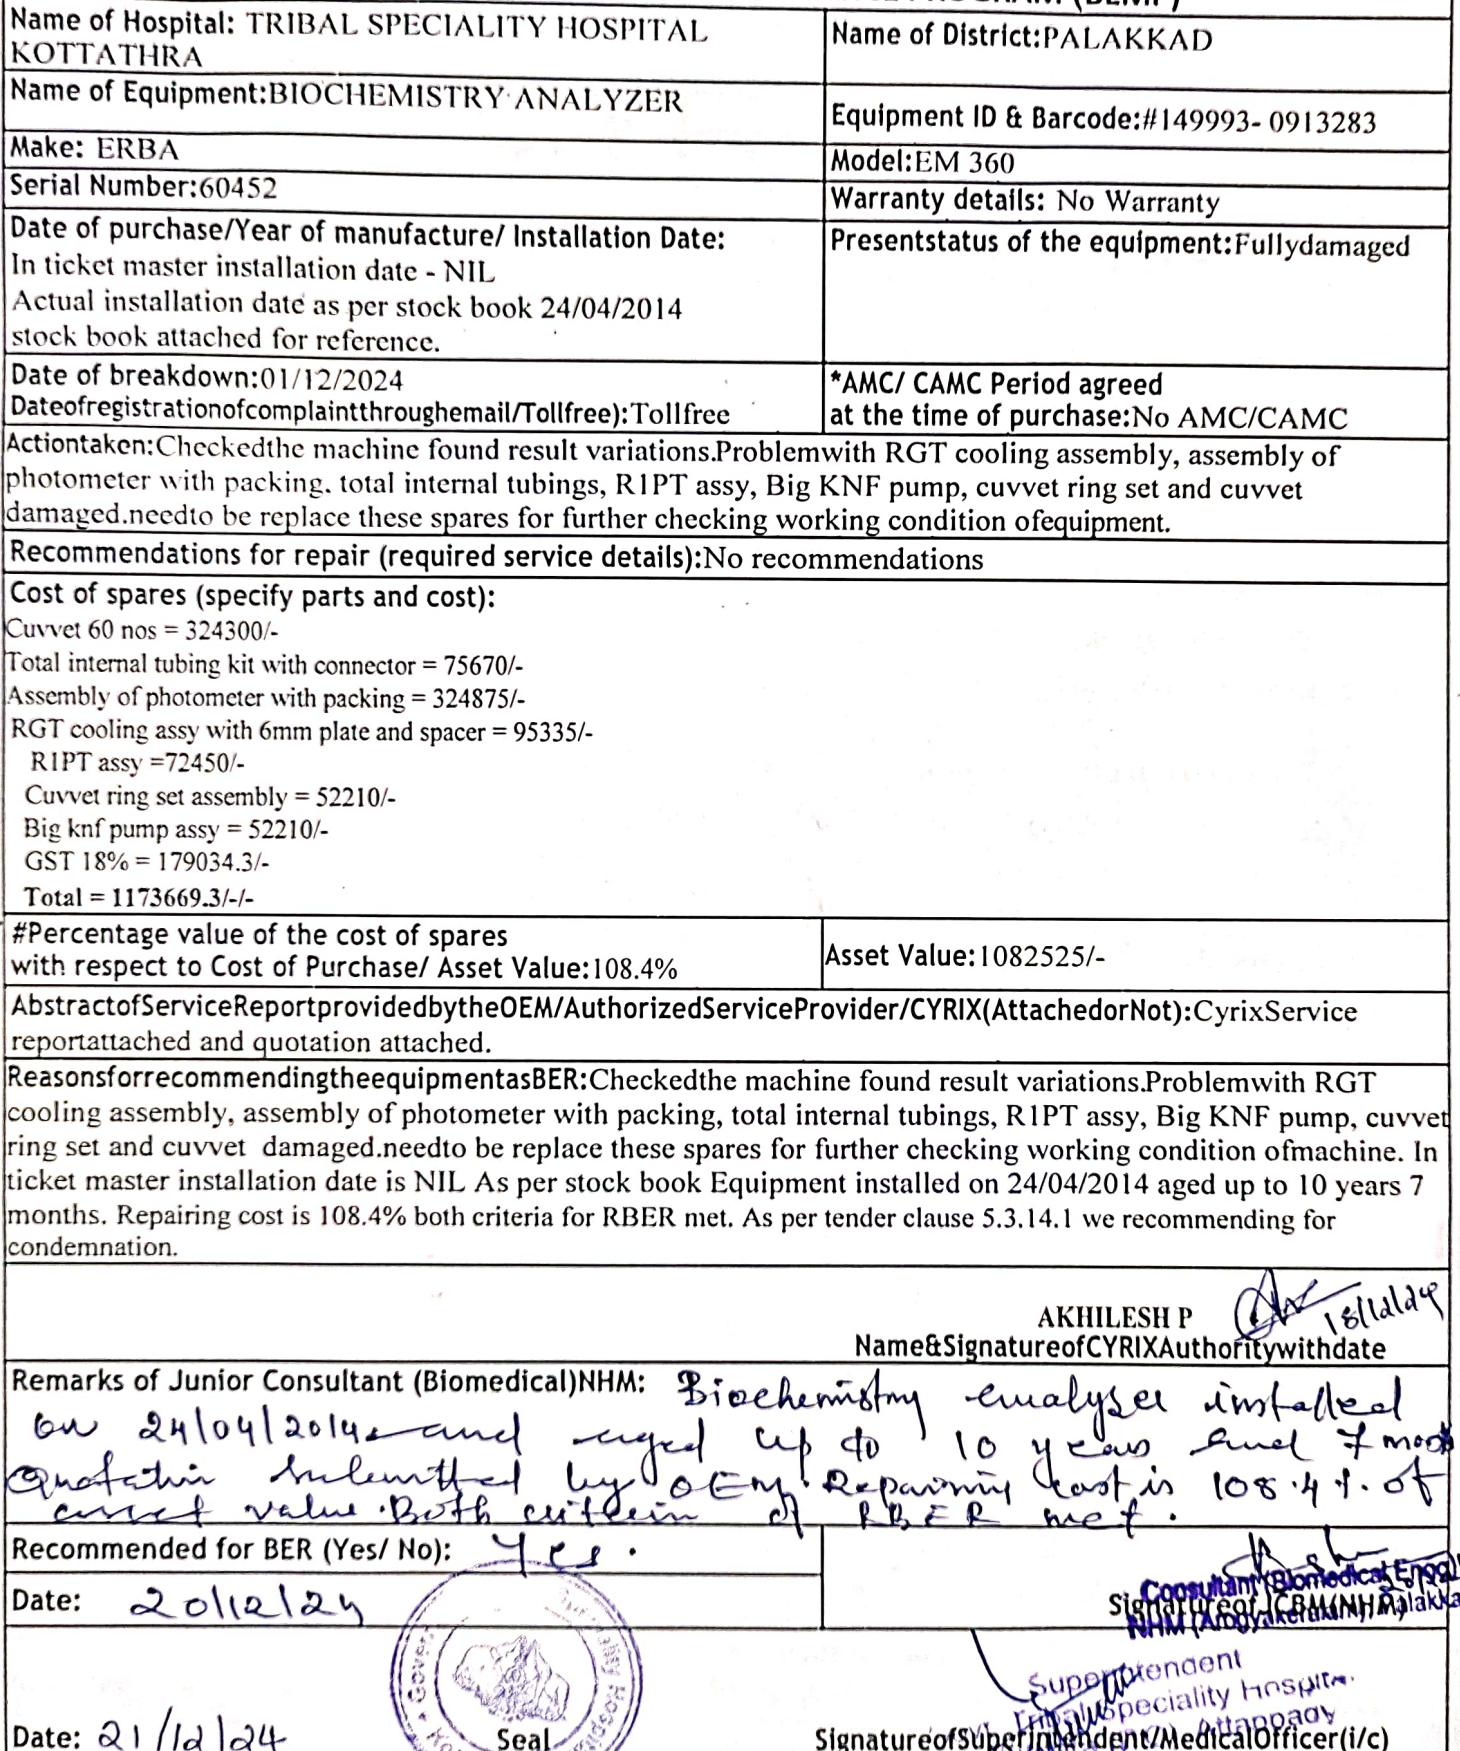 Name of Hospital: TRIBAL SPECIALITY HOSPITAL
KOTTATHRA
Name of District:PALAKKAD
Name of Equipment:BIOCHEMISTRY ANALYZER
Equipment ID & Barcode:#149993- 0913283
Make: ERBA
Model:EM 360
Serial Number:60452
Warranty details: No Warranty
Date of purchase/Year of manufacture/ Installation Date:
In ticket master installation date - NIL
Actual installation date as per stock book 24/04/2014
stock book attached for reference.
Presentstatus of the equipment:Fullydamaged
Date of breakdown:01/12/2024
Dateofregistrationofcomplaintthroughemail/Tollfree):Tollfree
*AMC/ CAMC Period agreed
at the time of purchase:No AMC/CAMC
Actiontaken:Checkedthe machine found result variations.Problemwith RGT cooling assembly, assembly of
photometer with packing. total internal tubings, R1PT assy, Big KNF pump, cuvvet ring set and cuvvet
damaged.needto be replace these spares for further checking working condition ofequipment.
Recommendations for repair (required service details):No recommendations
Cost of spares (specify parts and cost):
Cuvvet 60 nos = 324300/-
Total internal tubing kit with connector = 75670/-
Assembly of photometer with packing = 324875/-
RGT cooling assy with 6mm plate and spacer = 95335/-
R1PT assy =72450/-
Cuvvet ring set assembly = 52210/-
Big knf pump assy = 52210/-
GST 18% = 179034.3/-
Total = 1173669.3/-/-
#Percentage value of the cost of spares
with respect to Cost of Purchase/ Asset Value:108.4%
Asset Value:1082525/-
AbstractofServiceReportprovidedbytheOEM/AuthorizedServiceProvider/CYRIX(AttachedorNot):CyrixService
reportattached and quotation attached.
ReasonsforrecommendingtheequipmentasBER:Checkedthe machine found result variations.Problemwith RGT
cooling assembly, assembly of photometer with packing, total internal tubings, R1PT assy, Big KNF pump, cuvvet
ring set and cuvvet damaged.needto be replace these spares for further checking working condition ofmachine. In
ticket master installation date is NIL As per stock book Equipment installed on 24/04/2014 aged up to 10 years 7
months. Repairing cost is 108.4% both criteria for RBER met. As per tender clause 5.3.14.1 we recommending for
condemnation.
AKHILESH P 18/12/24
Name&SignatureofCYRIXAuthoritywithdate
Remarks of Junior Consultant (Biomedical)NHM: Biochemistry analyser installed
on 24/04/2014 and aged up to 10 years and 7
Quotation submitted by OEM. Repairing cost is 108.4%. of
asset value. Both criteria of RBER met.
Recommended for BER (Yes/ No): Yes.
Date: 20/12/24
Consultant (Biomedical Engg)
SignatureofJCBM(NHM)
NHM (Arogyakeralam)
Superintendent
Tribal Speciality Hospital
Attappady
Date: 21/12/24
Seal
SignatureofSuperintendent/MedicalOfficer(i/c)